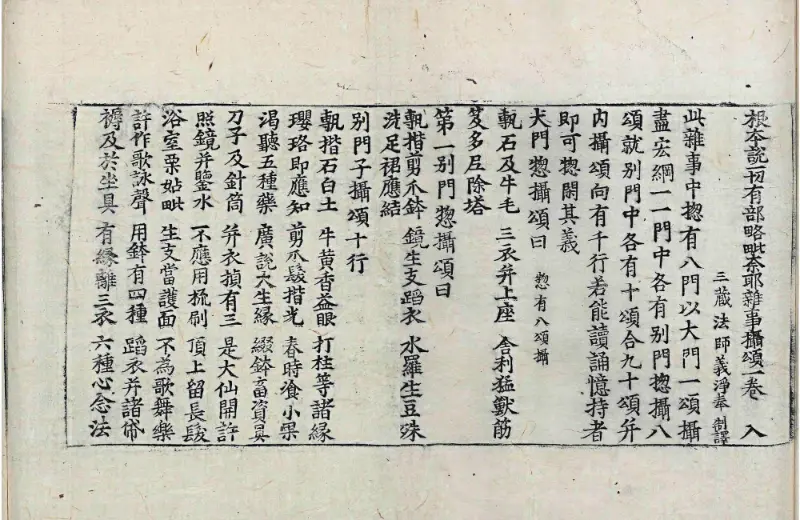 根夲說一切有部略毗柰耶雜事攝頌一卷 入
三藏法師義淨奉 制譯
此雜事中揔有八門以大門一頌攝
盡宏綱一一門中各有別門揔攝八
頌就別門中各有十頌合九十頌并
內攝頌向有千行若能讀誦憶持者
即可揔閑其義
大門揔攝頌曰 揔有八頌攝
甎石及牛毛 三衣并上座 舍利猛獸筋
笈多尼除塔
第一別門揔攝頌曰
甎揩剪爪鉢 鏡生支蹈衣 水羅生豆珠
洗足裙應結
別門子攝頌十行
甎揩石白土 牛黃香益眼 打柱等諸緣
瓔珞即應知 剪爪髮揩光 春時飡小果
渴聽五種藥 廣說大生緣 綴鉢畜資具
刀子及針筒 并衣楨有三 是大仙開許
照鏡并鑒水 不應用梳刷 頂上留長髮
浴室栗姑毗 生支當護面 不為歌舞樂
許作歌詠聲 用鉢有四種 蹈衣并諸帒
褥及於坐具 有緣離三衣 六種心念法